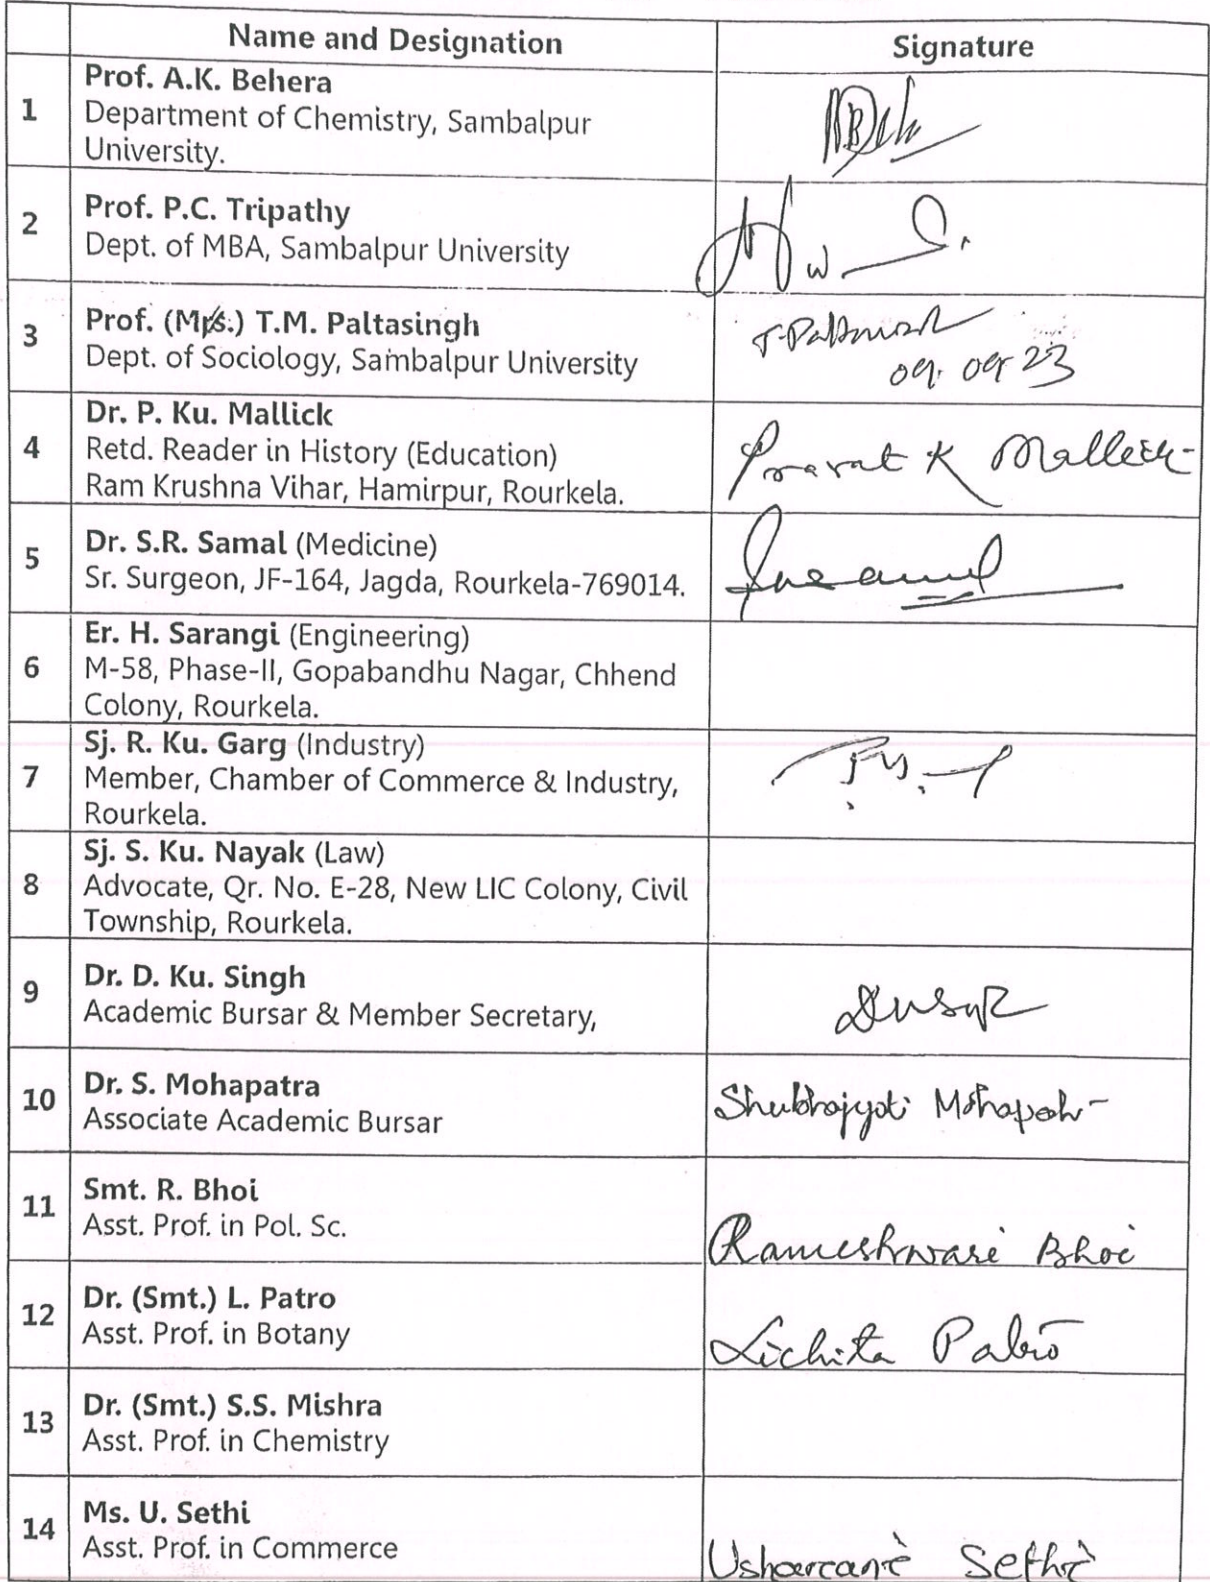 Name and Designation
Signature
1
Prof. A.K. Behera
Department of Chemistry, Sambalpur
University.
2
Prof. P.C. Tripathy
Dept. of MBA, Sambalpur University
3
Prof. (Mrs.) T.M. Paltasingh
Dept. of Sociology, Sambalpur University
09.09.23
4
Dr. P. Ku. Mallick
Retd. Reader in History (Education)
Ram Krushna Vihar, Hamirpur, Rourkela.
Pravat K Mallick
5
Dr. S.R. Samal (Medicine)
Sr. Surgeon, JF-164, Jagda, Rourkela-769014.
6
Er. H. Sarangi (Engineering)
M-58, Phase-II, Gopabandhu Nagar, Chhend
Colony, Rourkela.
7
Sj. R. Ku. Garg (Industry)
Member, Chamber of Commerce & Industry,
Rourkela.
8
Sj. S. Ku. Nayak (Law)
Advocate, Qr. No. E-28, New LIC Colony, Civil
Township, Rourkela.
9
Dr. D. Ku. Singh
Academic Bursar & Member Secretary,
10
Dr. S. Mohapatra
Associate Academic Bursar
Shubhrajyoti Mohapatr
11
Smt. R. Bhoi
Asst. Prof. in Pol. Sc.
Rameshwari Bhoi
12
Dr. (Smt.) L. Patro
Asst. Prof. in Botany
Lichita Patro
13
Dr. (Smt.) S.S. Mishra
Asst. Prof. in Chemistry
14
Ms. U. Sethi
Asst. Prof. in Commerce
Usharani Sethi